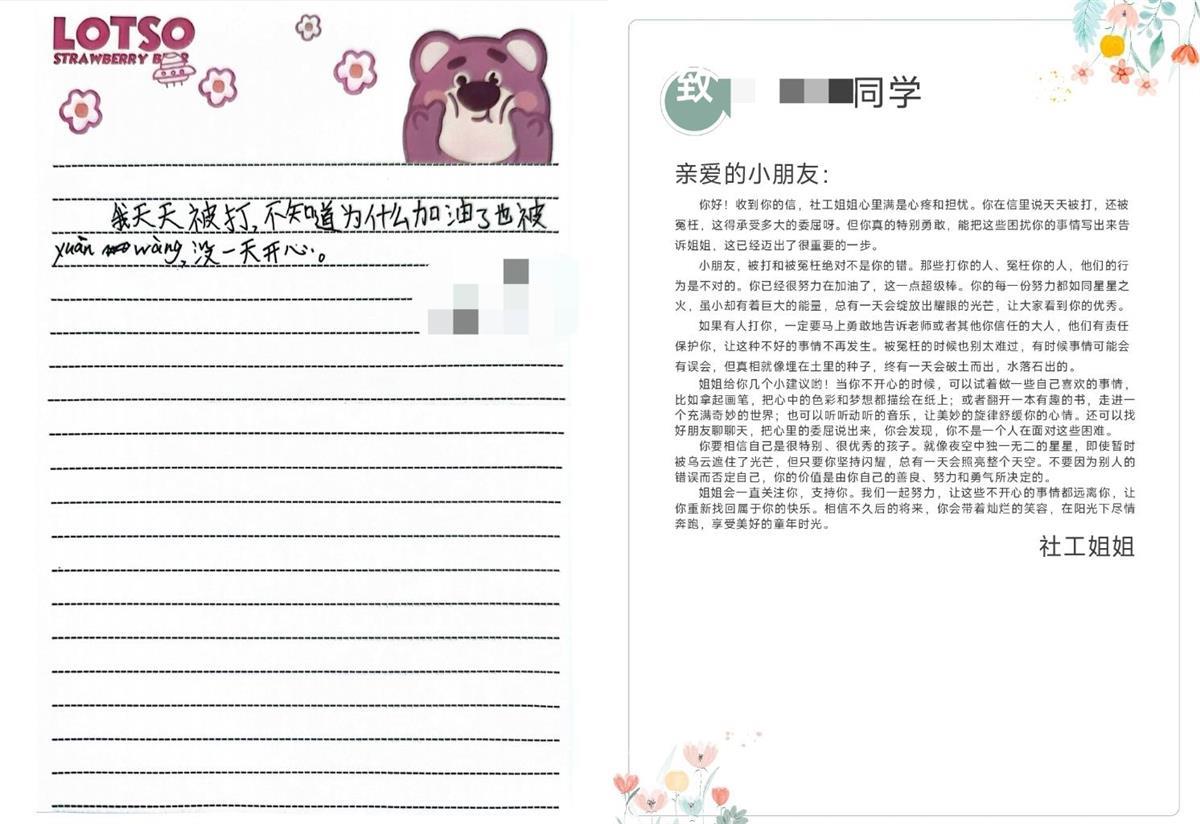 LOTSO
STRAWBERRY BEAR
我天天被打,不知道为什么加油了也被
yuān wàng,没一天开心。
致 同学
亲爱的小朋友：
你好！收到你的信，社工姐姐心里满是心疼和担忧。你在信里说天天被打，还被
冤枉，这得承受多大的委屈呀。但你真的特别勇敢，能把这些困扰你的事情写出来告
诉姐姐，这已经迈出了很重要的一步。
小朋友，被打和被冤枉绝对不是你的错。那些打你的人、冤枉你的人，他们的行
为是不对的。你已经很努力在加油了，这一点超级棒。你的每一份努力都如同星星之
火，虽小却有着巨大的能量，总有一天会绽放出耀眼的光芒，让大家看到你的优秀。
如果有人打你，一定要马上勇敢地告诉老师或者其他你信任的大人，他们有责任
保护你，让这种不好的事情不再发生。被冤枉的时候也别太难过，有时候事情可能会
有误会，但真相就像埋在土里的种子，终有一天会破土而出，水落石出的。
姐姐给你几个小建议哟！当你不开心的时候，可以试着做一些自己喜欢的事情，
比如拿起画笔，把心中的色彩和梦想都描绘在纸上；或者翻开一本有趣的书，走进一
个充满奇妙的世界；也可以听听动听的音乐，让美妙的旋律舒缓你的心情。还可以找
好朋友聊聊天，把心里的委屈说出来，你会发现，你不是一个人在面对这些困难。
你要相信自己是很特别、很优秀的孩子。就像夜空中独一无二的星星，即使暂时
被乌云遮住了光芒，但只要你坚持闪耀，总有一天会照亮整个天空。不要因为别人的
错误而否定自己，你的价值是由你自己的善良、努力和勇气所决定的。
姐姐会一直关注你，支持你。我们一起努力，让这些不开心的事情都远离你，让
你重新找回属于你的快乐。相信不久后的将来，你会带着灿烂的笑容，在阳光下尽情
奔跑，享受美好的童年时光。
社工姐姐